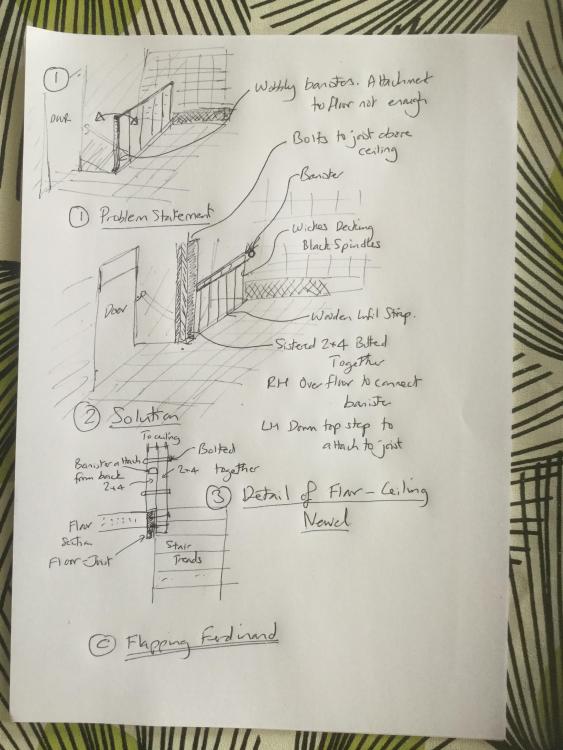 ①
Door
Wobbly banister. Attachment
to floor not enough
① Problem Statement
Bolts to joist above
ceiling
Banister
Wickes Decking
Black Spindles
Door
Wooden Infil Strip.
Sistered 2x4 Bolted
Together
RH Over floor to connect
banister
LH Down top step to
attach to joist
② Solution
To ceiling
Bolted
2x4 together
Banister attach
from back
2x4
③ Detail of Floor-Ceiling
Newel
Floor
Section
Floor Joist
Stair
Treads
© Flapping Ferdinand